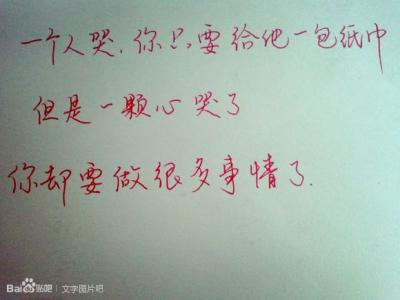 一个人哭，你只要给他一包纸巾
但是一颗心哭了
你却要做很多事情了.
Bai贴吧 | 文字图片吧